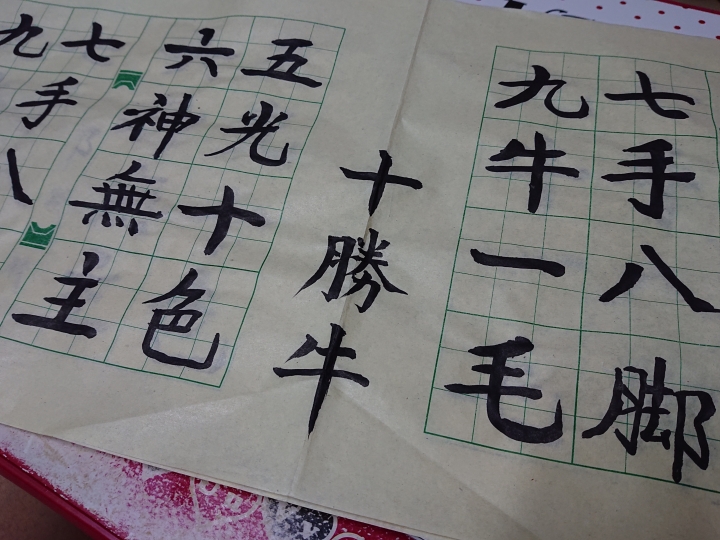 七手八脚
九牛一毛
十勝牛
五光十色
六神無主
七手八
九